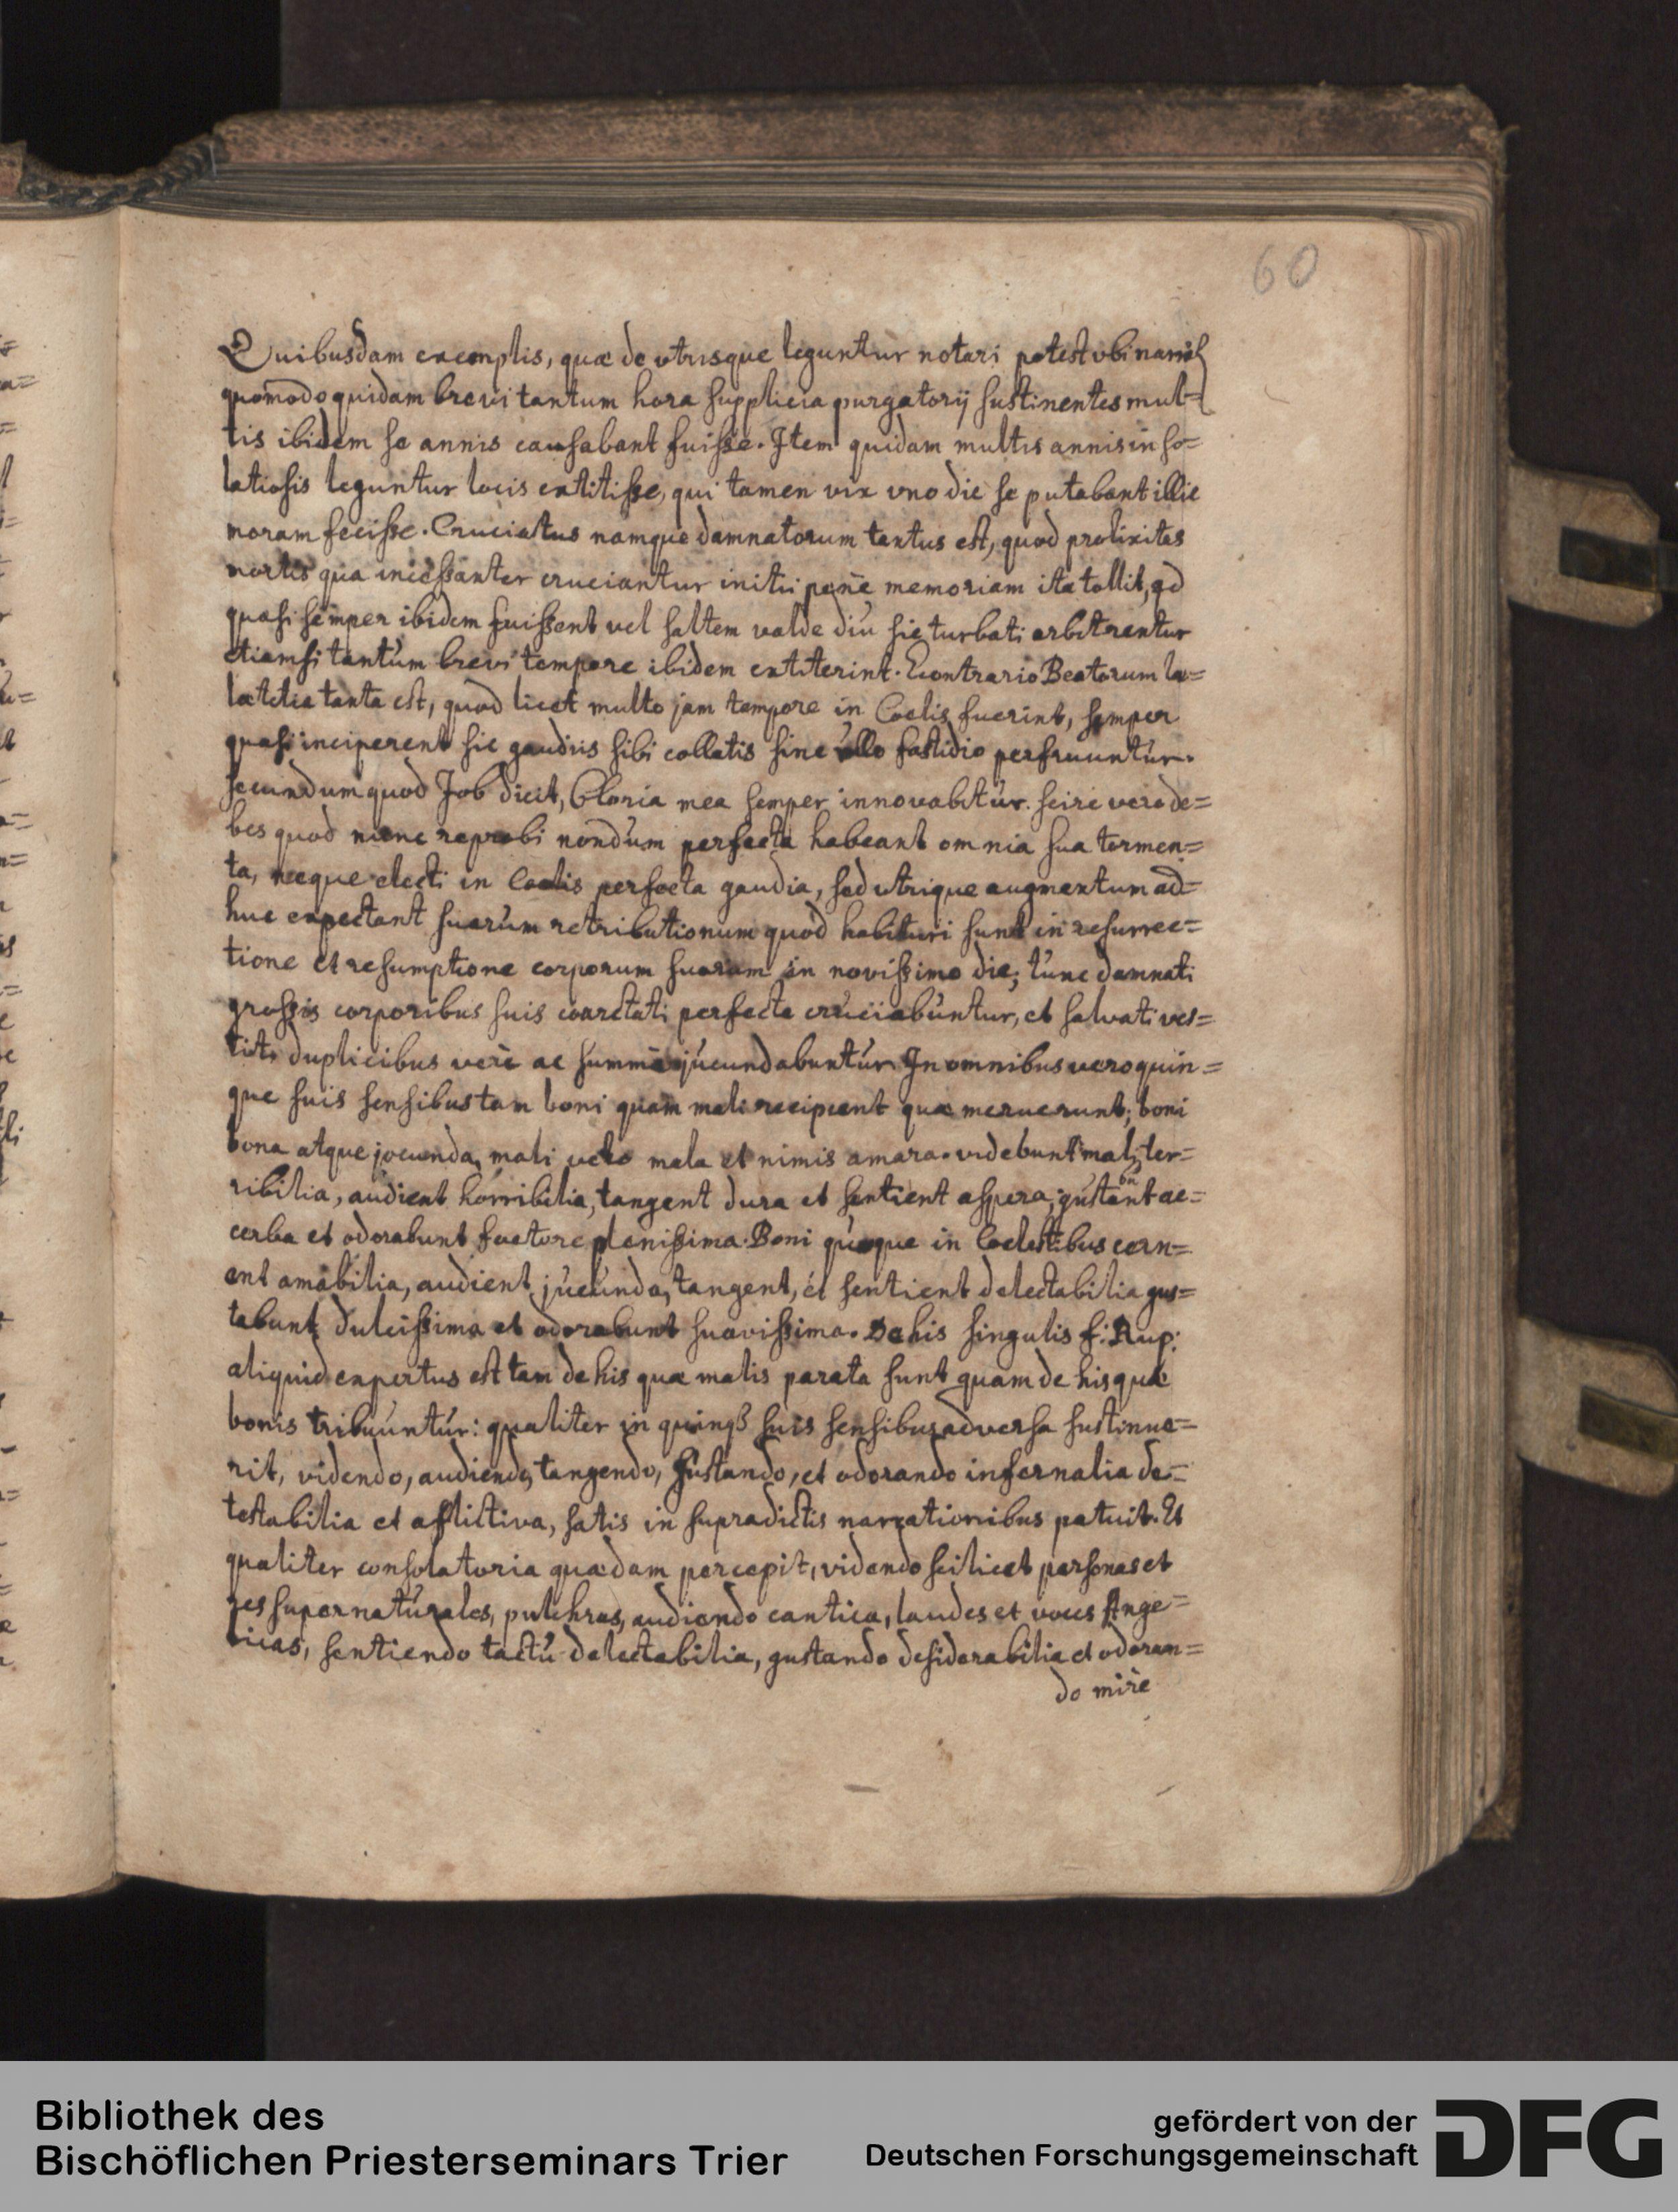 60
Quibusdam exemplis, quæ de vtrisque leguntur notari potest vbi narrat
quomodo quidam brevi tantum hora supplicia purgatorij sustinentes mul=
tis ibidem se annis causabant fuisse. Item quidam multis annis in so=
latiosis leguntur locis extitisse, qui tamen vix vno die se putabant illic
moram fecisse. Cruciatus namque damnatorum tantus est, quod prolixitas
mortis qua incessanter cruciantur initii penè memoriam ita tollit, qd
quasi semper ibidem fuissent vel saltem valde diu sic turbati arbitrentur
etiamsi tantum brevi tempore ibidem extiterint. Econtrario Beatorum læ=
lætitia tanta est, quod licet multo jam tempore in Coelis fuerint, semper
quasi inciperent sic gaudiis sibi collatis sine vllo fastidio perfruuntur.
secundum quod Job dicit, Gloria mea semper innovabitur. scire vero de=
bes quod nunc reprobi nondum perfecta habeant omnia sua tormen=
ta, neque electi in Coelis perfecta gaudia, sed utrique augmentum ad=
huc expectant suarum retributionum quod habituri sunt in resurrec=
tione et resumptione corporum suorum in novissimo die, tunc damnati
grossis corporibus suis coarctati perfecte cruciabuntur, et salvati ves=
titi duplicibus verè ac summè jucundabuntur. In omnibus vero quin=
que suis sensibus tam boni quam mali recipient quæ meruerunt, boni
bona atque jocunda, mali vero mala et nimis amara. videbunt mali ter=
ribilia, audient horribilia, tangent dura et sentient aspera, gustabunt ac=
cerba et odorabunt foetore plenissima. Boni quoque in Coelestibus cern=
ent amabilia, audient jucunda, tangent, et sentient delectabilia gus=
tabunt dulcissima et odorabunt suavissima. De his singulis f. Rup:
aliquid expertus est tam de his quæ malis parata sunt quam de his quæ
bonis tribuuntur: qualiter in quinqȝ suis sensibus adversa sustinue=
rit, videndo, audiendo, tangendo, gustando, et odorando infernalia de=
testabilia et aflictiva, satis in supradictis narrationibus patuit. Et
qualiter consolatoria quædam percepit, videndo scilicet personas et
res supernaturales, pulchras, audiendo cantica, laudes et voces Ange=
licas, sentiendo tactu delectabilia, gustando desiderabilia et odoran=
do mirè
Bibliothek des
Bischöflichen Priesterseminars Trier
gefördert von der
Deutschen Forschungsgemeinschaft
DFG